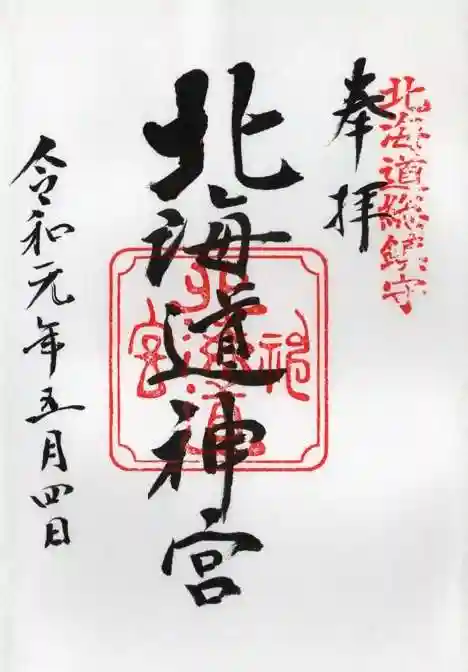 北海道総鎮守
奉拝
北海道神宮
北海道神宮
令和元年五月四日